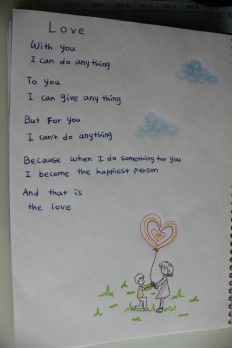 Love
With you
I can do anything
To you
I can give any thing
But For you
I can't do anything
Because when I do something for you
I become the happiest person
And that is
the love